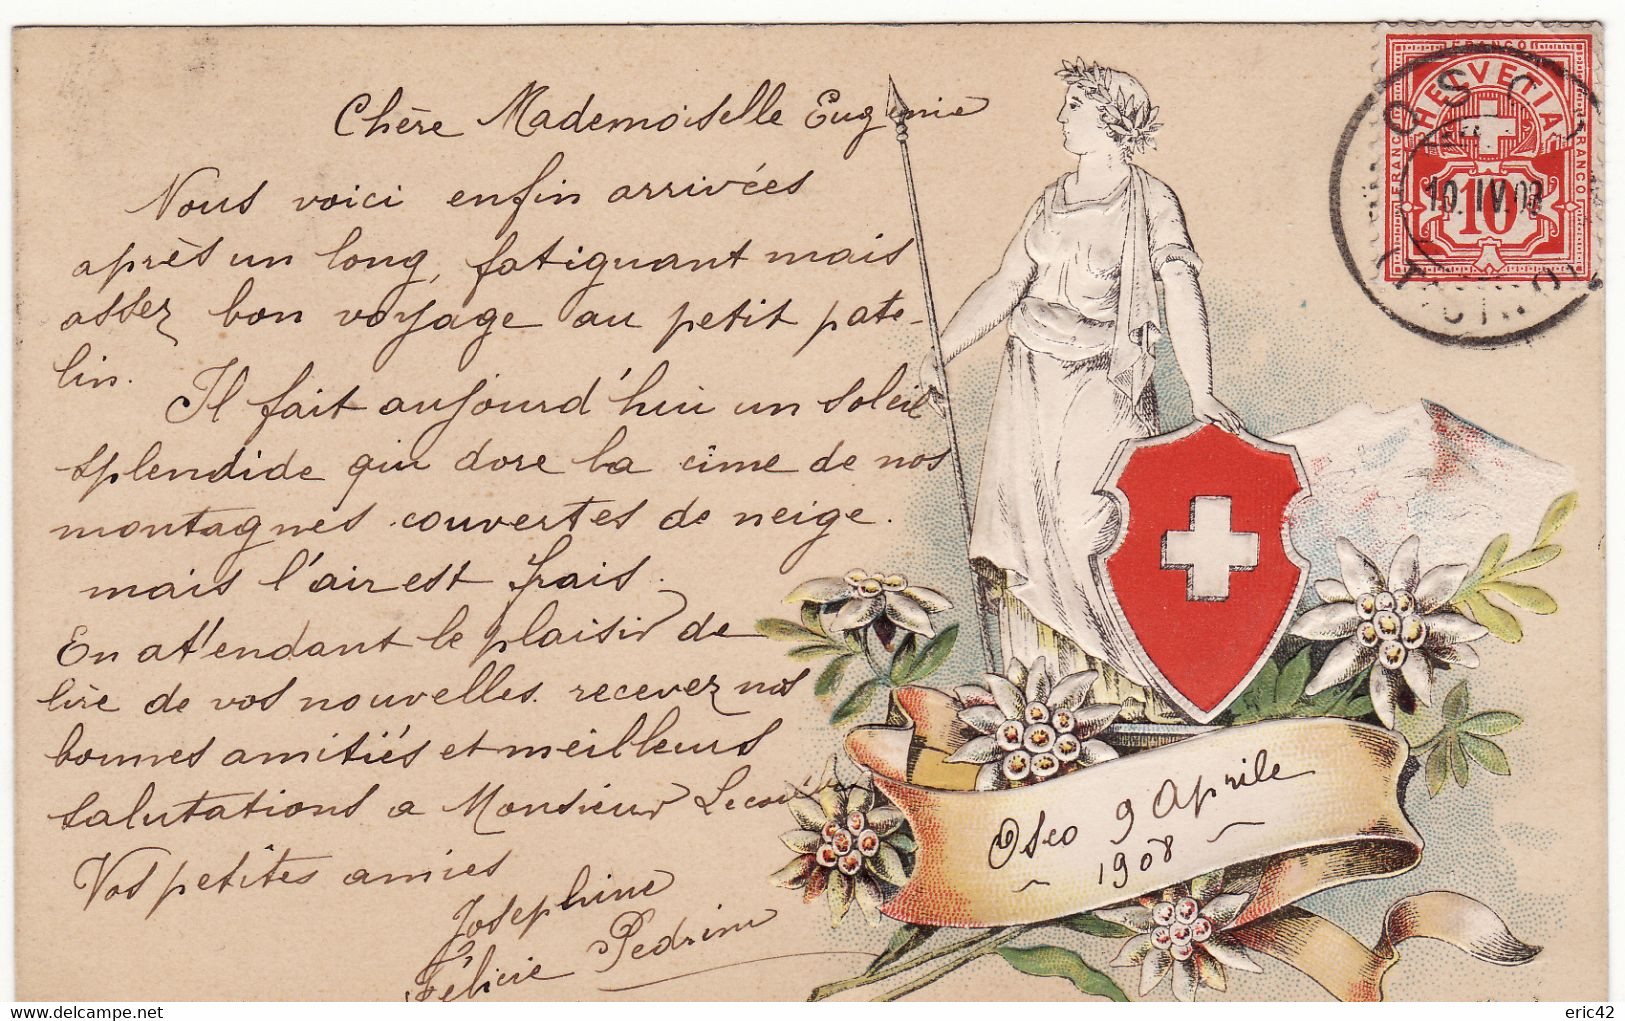 Chère Mademoiselle Eugenie
Nous voici enfin arrivées
après un long, fatiguant mais
assez bon voyage au petit pate-
lin.
Il fait aujourd'hui un soleil
splendide qui dore la cime de nos
montagnes couvertes de neige.
mais l'air est frais.
En at'endant le plaisir de
lire de vos nouvelles. recevez nos
bonnes amitiés et meilleurs
salutations a Monsieur
Vos petites amies
Josephine
Félicie Pedrini
FRANCO
HELVETIA
FRANCO
FRANCO
10
OSCO
10.IV.08
TICINO
Osco 9 Aprile
~ 1908 ~
eric42